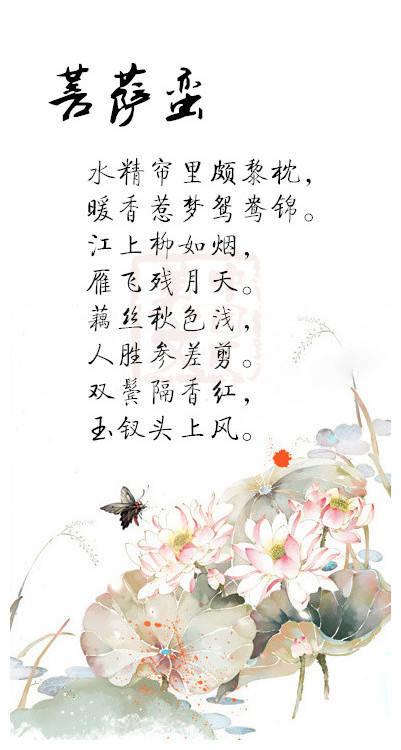 菩萨蛮
水精帘里颇黎枕，
暖香惹梦鸳鸯锦。
江上柳如烟，
雁飞残月天。
藕丝秋色浅，
人胜参差剪。
双鬓隔香红，
玉钗头上风。